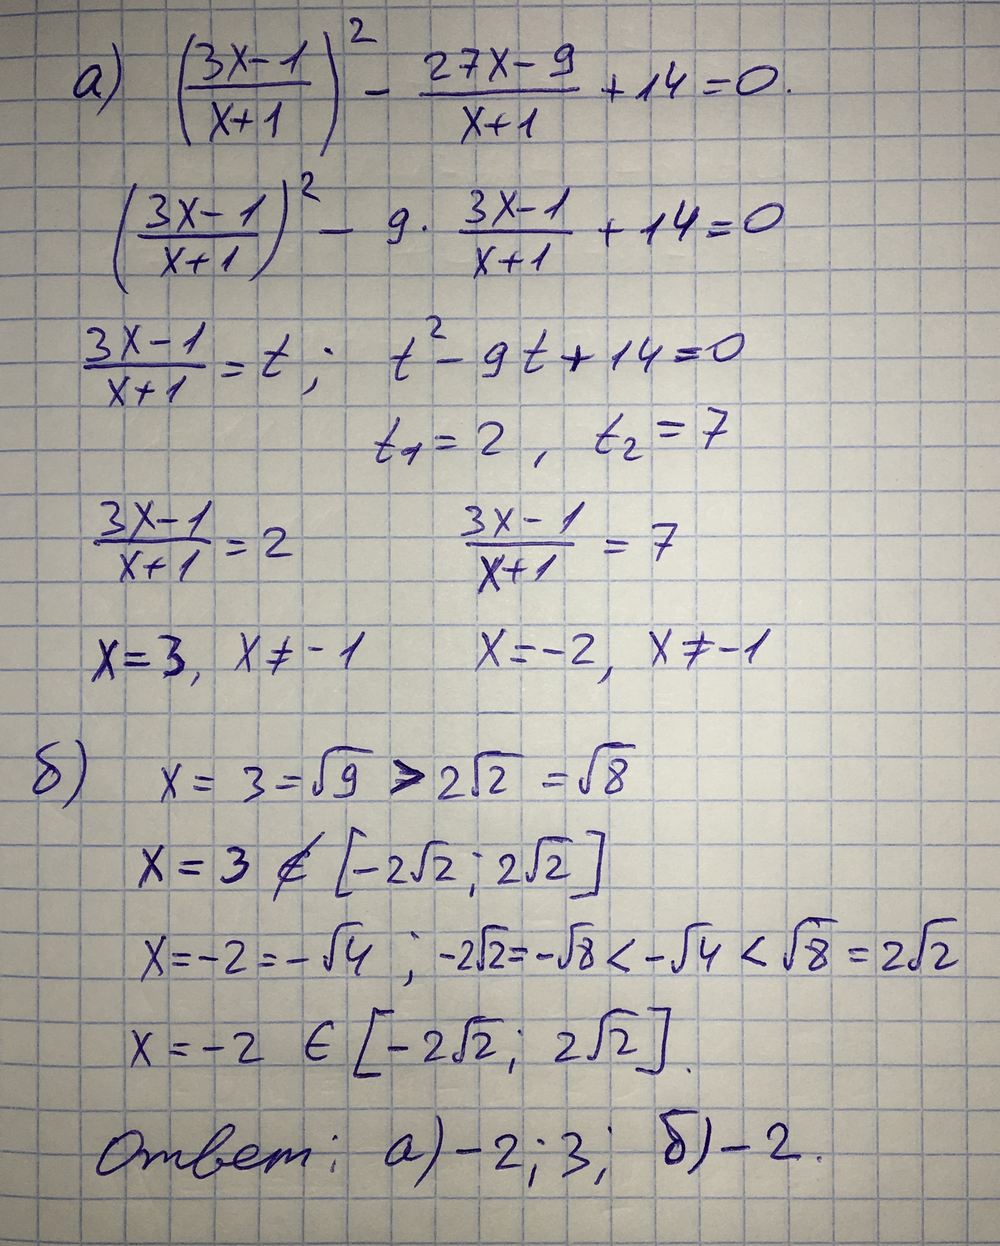 а) ((3x-1)/(x+1))² - (27x-9)/(x+1) + 14 = 0.
((3x-1)/(x+1))² - 9 · (3x-1)/(x+1) + 14 = 0
(3x-1)/(x+1) = t; t² - 9t + 14 = 0
t₁ = 2, t₂ = 7
(3x-1)/(x+1) = 2 (3x-1)/(x+1) = 7
x = 3, x ≠ -1 x = -2, x ≠ -1
б) x = 3 = √9 > 2√2 = √8
x = 3 ∉ [-2√2; 2√2]
x = -2 = -√4; -2√2 = -√8 < -√4 < √8 = 2√2
x = -2 ∈ [-2√2; 2√2].
Ответ: а) -2; 3; б) -2.